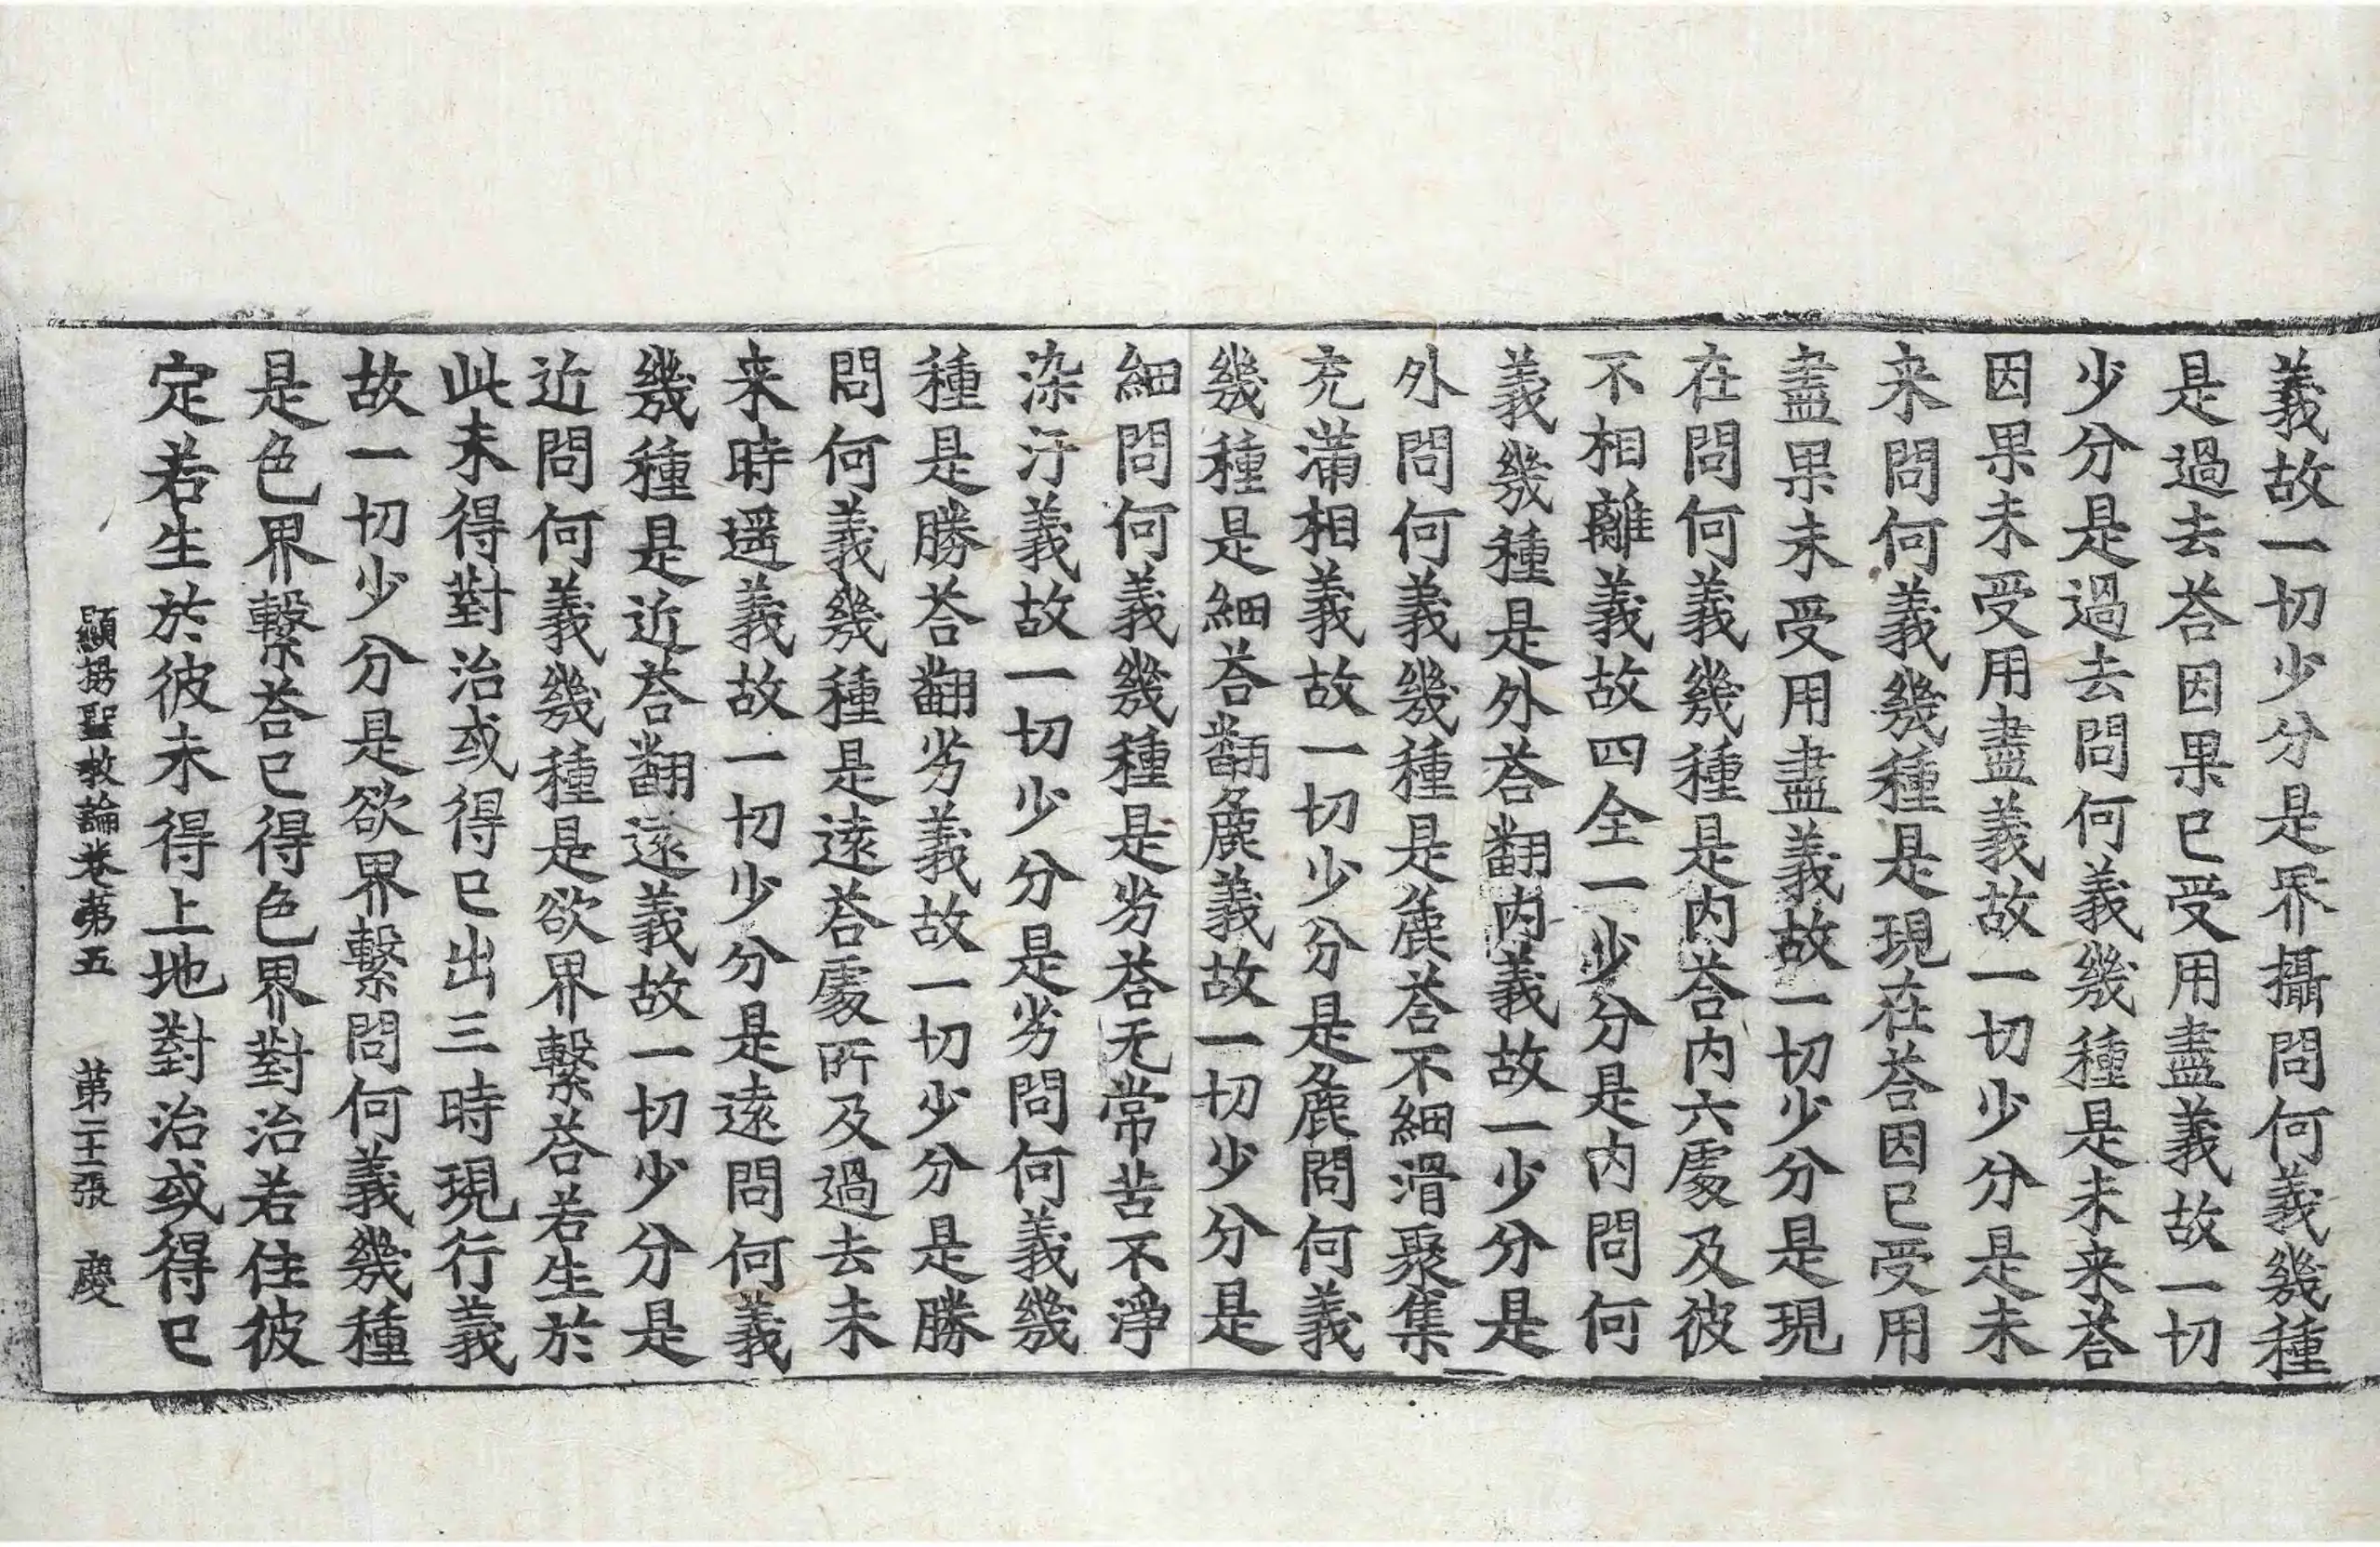 義故一切少分是界攝問何義幾種
是過去荅因果已受用盡義故一切
少分是過去問何義幾種是未来荅
因果未受用盡義故一切少分是未
来問何義幾種是現在荅因已受用
盡果未受用盡義故一切少分是現
在問何義幾種是内荅内六處及彼
不相離義故四全一少分是内問何
義幾種是外荅翻内義故一少分是
外問何義幾種是麁荅不細滑聚集
充滿相義故一切少分是麁問何義
幾種是細荅翻麁義故一切少分是
細問何義幾種是劣荅无常苦不淨
染汙義故一切少分是劣問何義幾
種是勝荅翻劣義故一切少分是勝
問何義幾種是遠荅處所及過去未
来時遥義故一切少分是遠問何義
幾種是近荅翻遠義故一切少分是
近問何義幾種是欲界繫荅若生於
此未得對治或得已出三時現行義
故一切少分是欲界繫問何義幾種
是色界繫荅已得色界對治若住彼
定若生於彼未得上地對治或得已
顯揚聖教論卷第五 第二十二張 慶